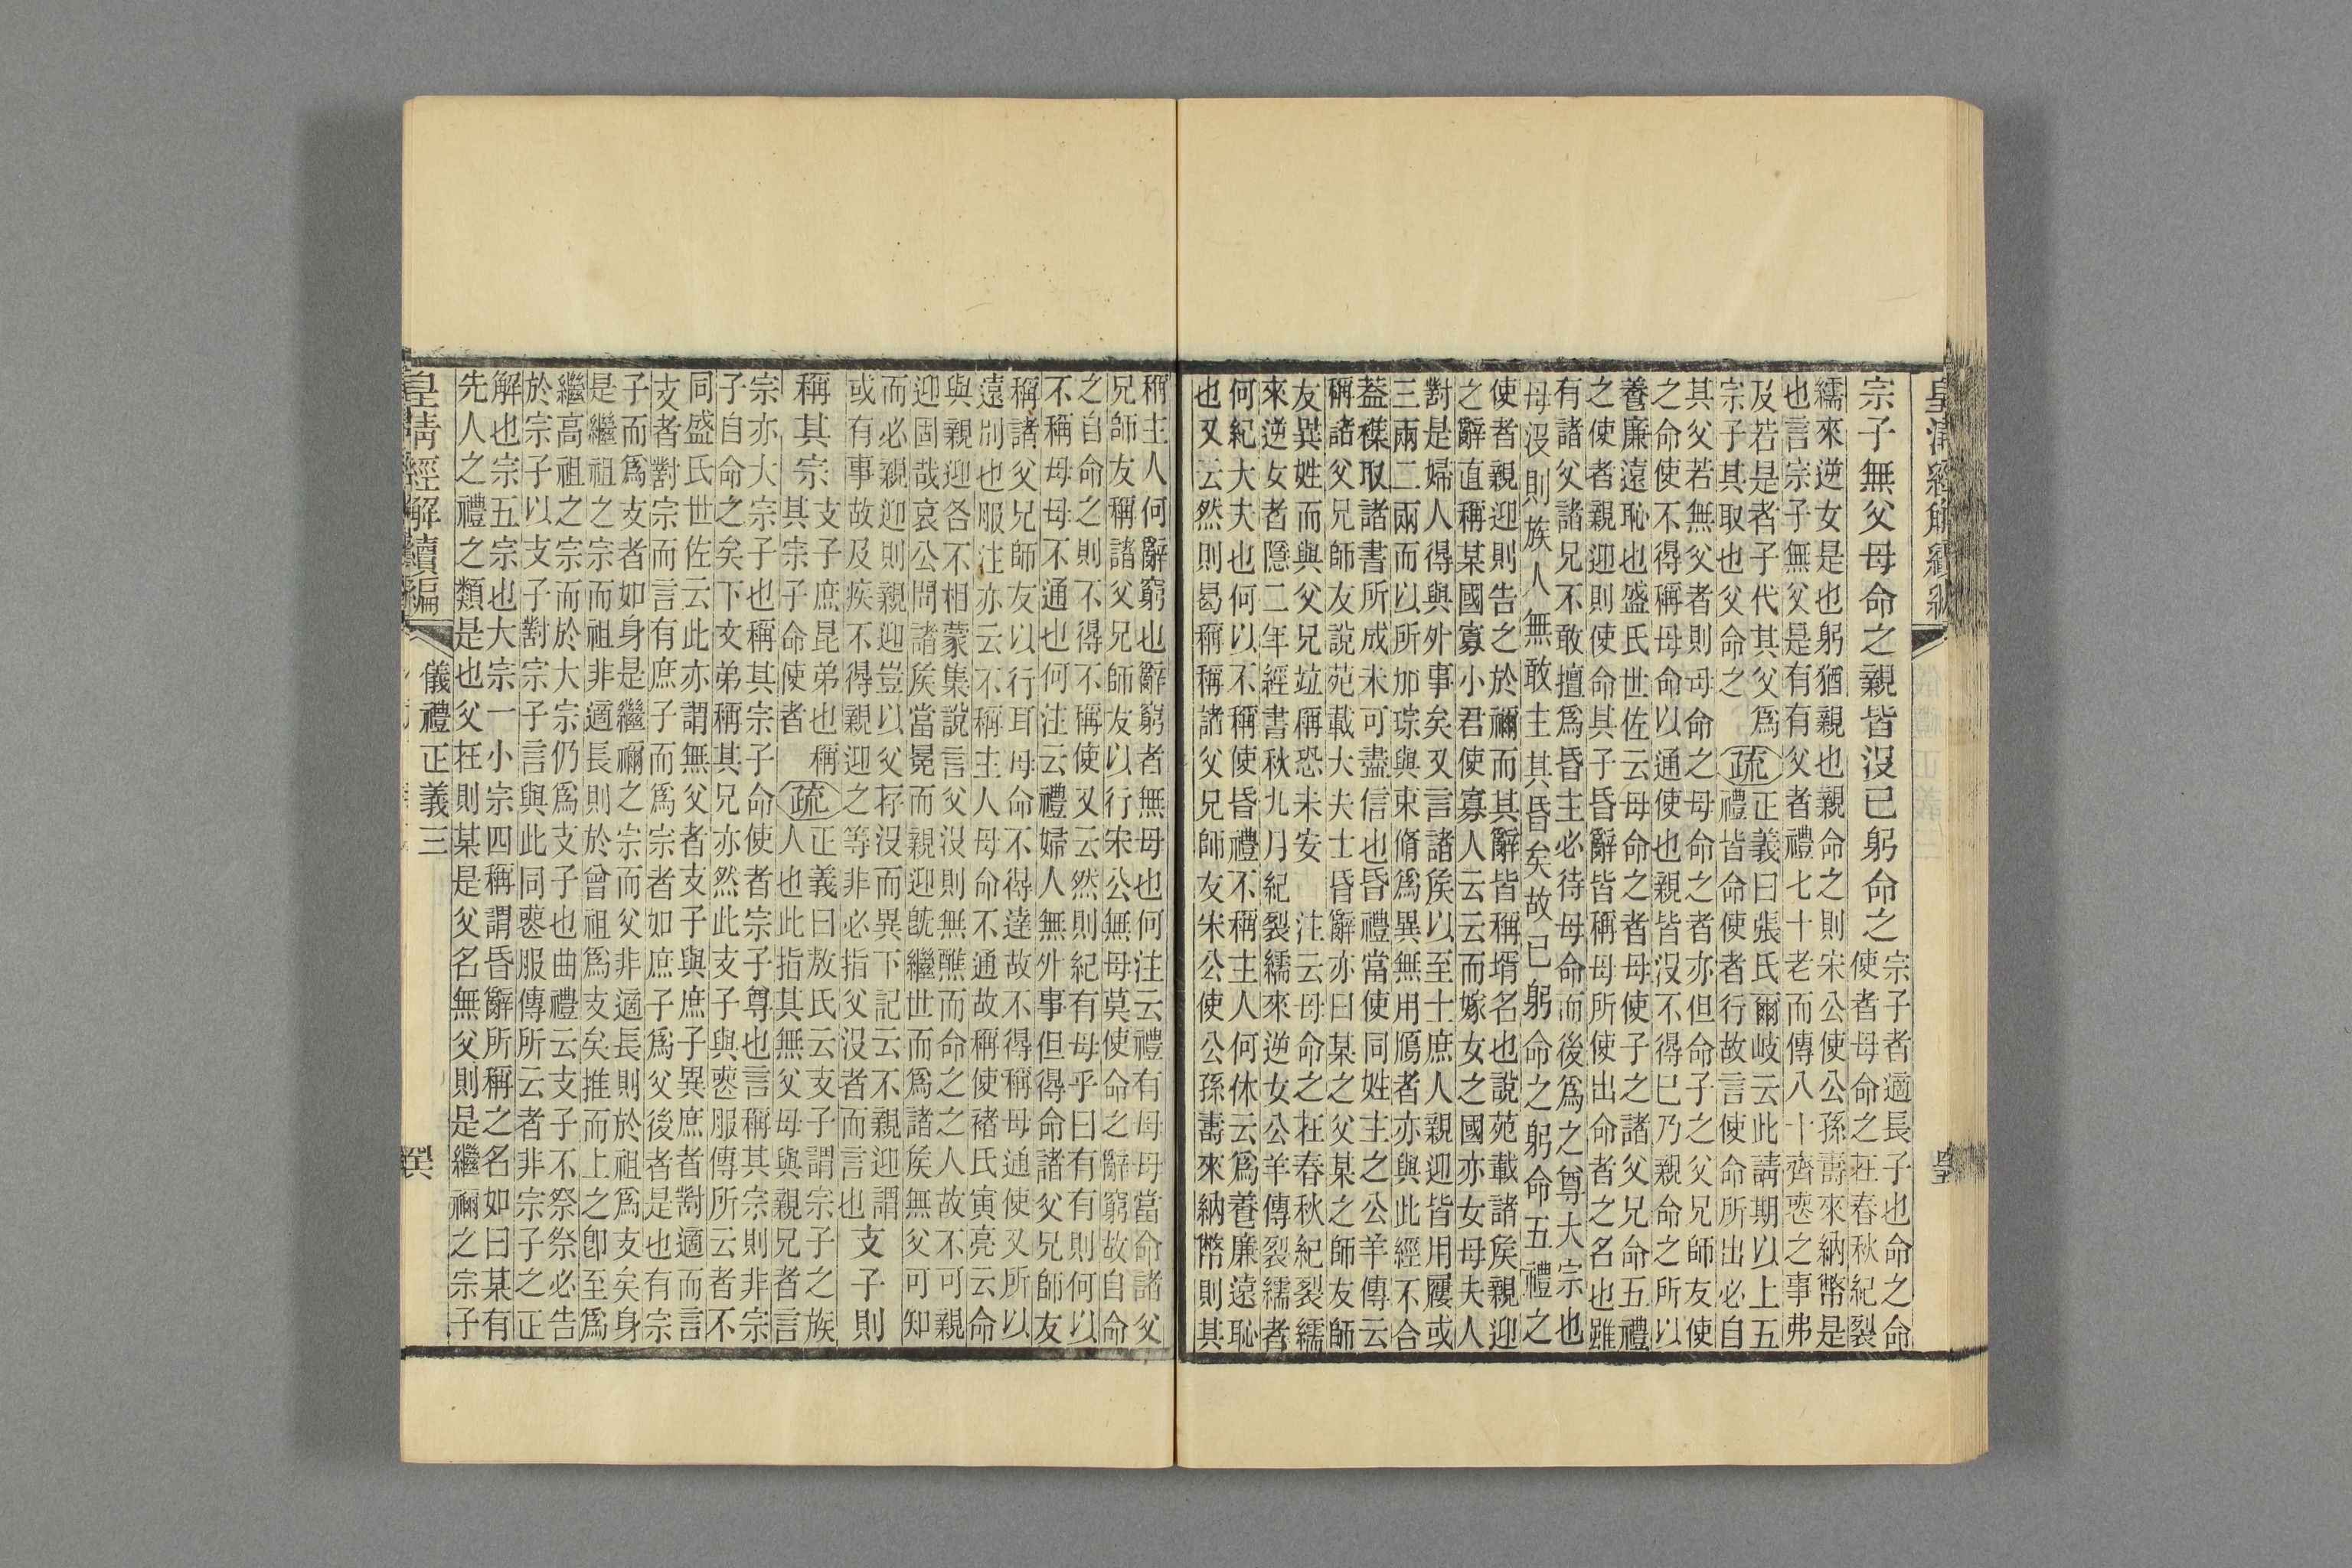 皇清經解續編
宗子無父母命之親皆沒已躬命之
宗子者適長子也命之命
使者母命之在春秋紀裂
繻來逆女是也躬猶親也親命之則宋公使公孫壽來納幣是
也言宗子無父是有有父者禮七十老而傳八十齊喪之事弗
及若是者子代其父爲
宗子其取也父命之
疏
正義曰張氏爾岐云此請期以上五
禮皆命使者行故言使命所出必自
其父若無父者則母命之母命之者亦但命子之父兄師友使
之命使不得稱母命以通使也親皆沒不得已乃親命之所以
養廉遠恥也盛氏世佐云母命之者母使子之諸父兄命五禮
之使者親迎則使命其子昏辭皆稱母所使出命者之名也雖
有諸父諸兄不敢擅爲昏主必待母命而後爲之尊大宗也
母沒則族人無敢主其昏矣故已躬命之躬命五禮之
使者親迎則告之於禰而其辭皆稱壻名也說苑載諸矦親迎
之辭直稱某國寡小君使寡人云云而嫁女之國亦女母夫人
對是婦人得與外事矣又言諸矦以至士庶人親迎皆用屨或
三兩二兩而以所加琮與束脩爲異無用鴈者亦與此經不合
葢襍取諸書所成未可盡信也昏禮當使同姓主之公羊傳云
稱諸父兄師友說苑載大夫士昏辭亦曰某之父某之師友師
友異姓而與父兄竝稱恐未安 注云母命之在春秋紀裂繻
來逆女者隱二年經書秋九月紀裂繻來逆女公羊傳裂繻者
何紀大夫也何以不稱使昏禮不稱主人何休云爲養廉遠恥
也又云然則曷稱稱諸父兄師友宋公使公孫壽來納幣則其
稱主人何辭窮也辭窮者無母也何注云禮有母母當命諸父
兄師友稱諸父兄師友以行宋公無母莫使命之辭窮故自命
之自命之則不得不稱使又云然則紀有母乎曰有有則何以
不稱母母不通也何注云禮婦人無外事但得命諸父兄師友
稱諸父兄師友以行耳母命不得達故不得稱母通使又所以
遠別也服注亦云不稱主人母命不通故稱使褚氏寅亮云命
與親迎各不相蒙集說言父沒則無醮而命之之人故不可親
迎固哉哀公問諸矦當冕而親迎旣繼世而爲諸矦無父可知
而必親迎則親迎豈以父存沒而異下記云不親迎謂
或有事故及疾不得親迎之等非必指父沒者而言也
支子則
稱其宗
支子庶昆弟也稱
其宗子命使者
疏
正義曰敖氏云支子謂宗子之族
人也此指其無父母與親兄者言
宗亦大宗子也稱其宗子命使者宗子尊也言稱其宗則非宗
子自命之矣下文弟稱其兄亦然此支子與喪服傳所云者不
同盛氏世佐云此亦謂無父者支子與庶子異庶者對適而言
支者對宗而言有庶子而爲宗者如庶子爲父後者是也有宗
子而爲支者如身是繼禰之宗而父非適長則於祖爲支矣身
是繼祖之宗而祖非適長則於曾祖爲支矣推而上之卽至爲
繼高祖之宗而於大宗仍爲支子也曲禮云支子不祭祭必告
於宗子以支子對宗子言與此同喪服傳所云者非宗子之正
解也宗五宗也大宗一小宗四稱謂昏辭所稱之名如曰某有
先人之禮之類是也父在則某是父名無父則是繼禰之宗子
皇清經解續編
儀禮正義三